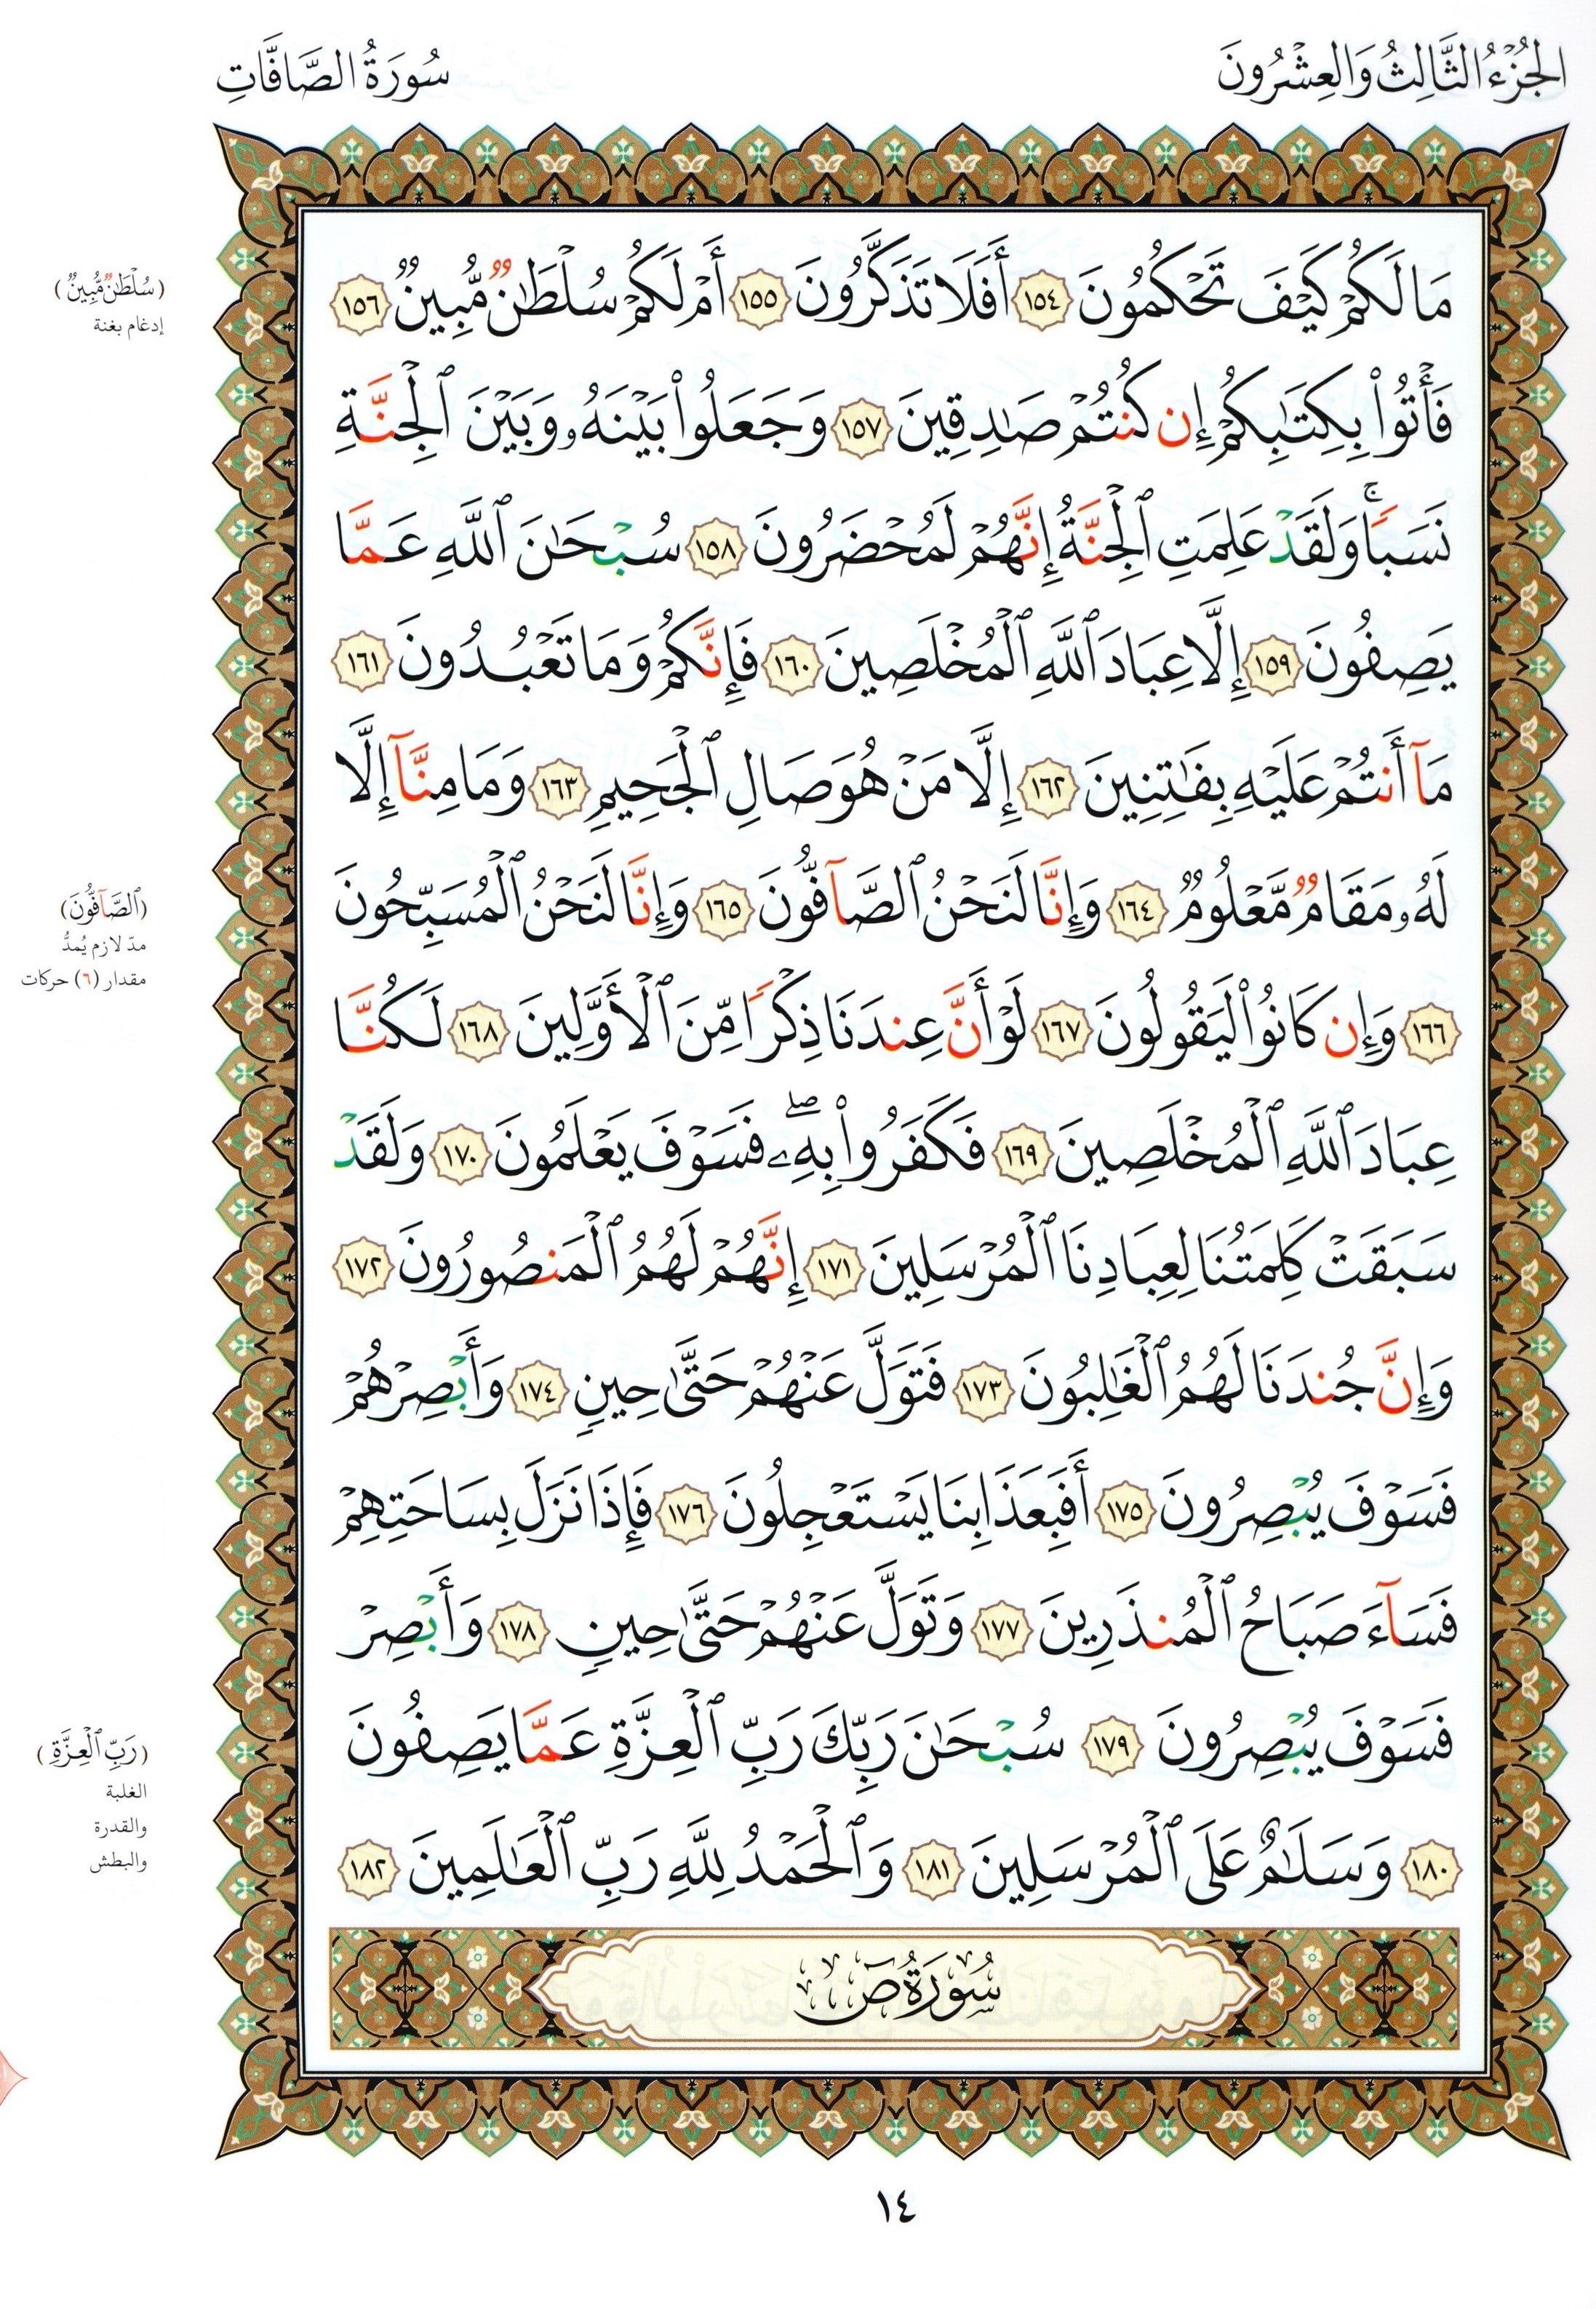 الجُزْءُ الثَّالِثُ وَالعِشْرُونَ
سُورَةُ الصَّافَّاتِ
مَا لَكُمْ كَيْفَ تَحْكُمُونَ ١٥٤ أَفَلَا تَذَكَّرُونَ ١٥٥ أَمْ لَكُمْ سُلْطَٰنٌ مُّبِينٌ ١٥٦
فَأْتُوا۟ بِكِتَٰبِكُمْ إِن كُنتُمْ صَٰدِقِينَ ١٥٧ وَجَعَلُوا۟ بَيْنَهُۥ وَبَيْنَ ٱلْجِنَّةِ
نَسَبًا ۚ وَلَقَدْ عَلِمَتِ ٱلْجِنَّةُ إِنَّهُمْ لَمُحْضَرُونَ ١٥٨ سُبْحَٰنَ ٱللَّهِ عَمَّا
يَصِفُونَ ١٥٩ إِلَّا عِبَادَ ٱللَّهِ ٱلْمُخْلَصِينَ ١٦٠ فَإِنَّكُمْ وَمَا تَعْبُدُونَ ١٦١
مَآ أَنتُمْ عَلَيْهِ بِفَٰتِنِينَ ١٦٢ إِلَّا مَنْ هُوَ صَالِ ٱلْجَحِيمِ ١٦٣ وَمَا مِنَّآ إِلَّا
لَهُۥ مَقَامٌ مَّعْلُومٌ ١٦٤ وَإِنَّا لَنَحْنُ ٱلصَّآفُّونَ ١٦٥ وَإِنَّا لَنَحْنُ ٱلْمُسَبِّحُونَ
١٦٦ وَإِن كَانُوا۟ لَيَقُولُونَ ١٦٧ لَوْ أَنَّ عِندَنَا ذِكْرًا مِّنَ ٱلْأَوَّلِينَ ١٦٨ لَكُنَّا
عِبَادَ ٱللَّهِ ٱلْمُخْلَصِينَ ١٦٩ فَكَفَرُوا۟ بِهِۦ ۖ فَسَوْفَ يَعْلَمُونَ ١٧٠ وَلَقَدْ
سَبَقَتْ كَلِمَتُنَا لِعِبَادِنَا ٱلْمُرْسَلِينَ ١٧١ إِنَّهُمْ لَهُمُ ٱلْمَنصُورُونَ ١٧٢
وَإِنَّ جُندَنَا لَهُمُ ٱلْغَٰلِبُونَ ١٧٣ فَتَوَلَّ عَنْهُمْ حَتَّىٰ حِينٍ ١٧٤ وَأَبْصِرْهُمْ
فَسَوْفَ يُبْصِرُونَ ١٧٥ أَفَبِعَذَابِنَا يَسْتَعْجِلُونَ ١٧٦ فَإِذَا نَزَلَ بِسَاحَتِهِمْ
فَسَآءَ صَبَاحُ ٱلْمُنذَرِينَ ١٧٧ وَتَوَلَّ عَنْهُمْ حَتَّىٰ حِينٍ ١٧٨ وَأَبْصِرْ
فَسَوْفَ يُبْصِرُونَ ١٧٩ سُبْحَٰنَ رَبِّكَ رَبِّ ٱلْعِزَّةِ عَمَّا يَصِفُونَ
١٨٠ وَسَلَٰمٌ عَلَى ٱلْمُرْسَلِينَ ١٨١ وَٱلْحَمْدُ لِلَّهِ رَبِّ ٱلْعَٰلَمِينَ ١٨٢
سُورَةُ صٓ
(سُلْطَٰنٌ مُّبِينٌ)
إدغام بغنة
(ٱلصَّآفُّونَ)
مدّ لازم يُمدُّ
مقدار (٦) حركات
(رَبِّ ٱلْعِزَّةِ)
الغلبة
والقدرة
والبطش
١٤